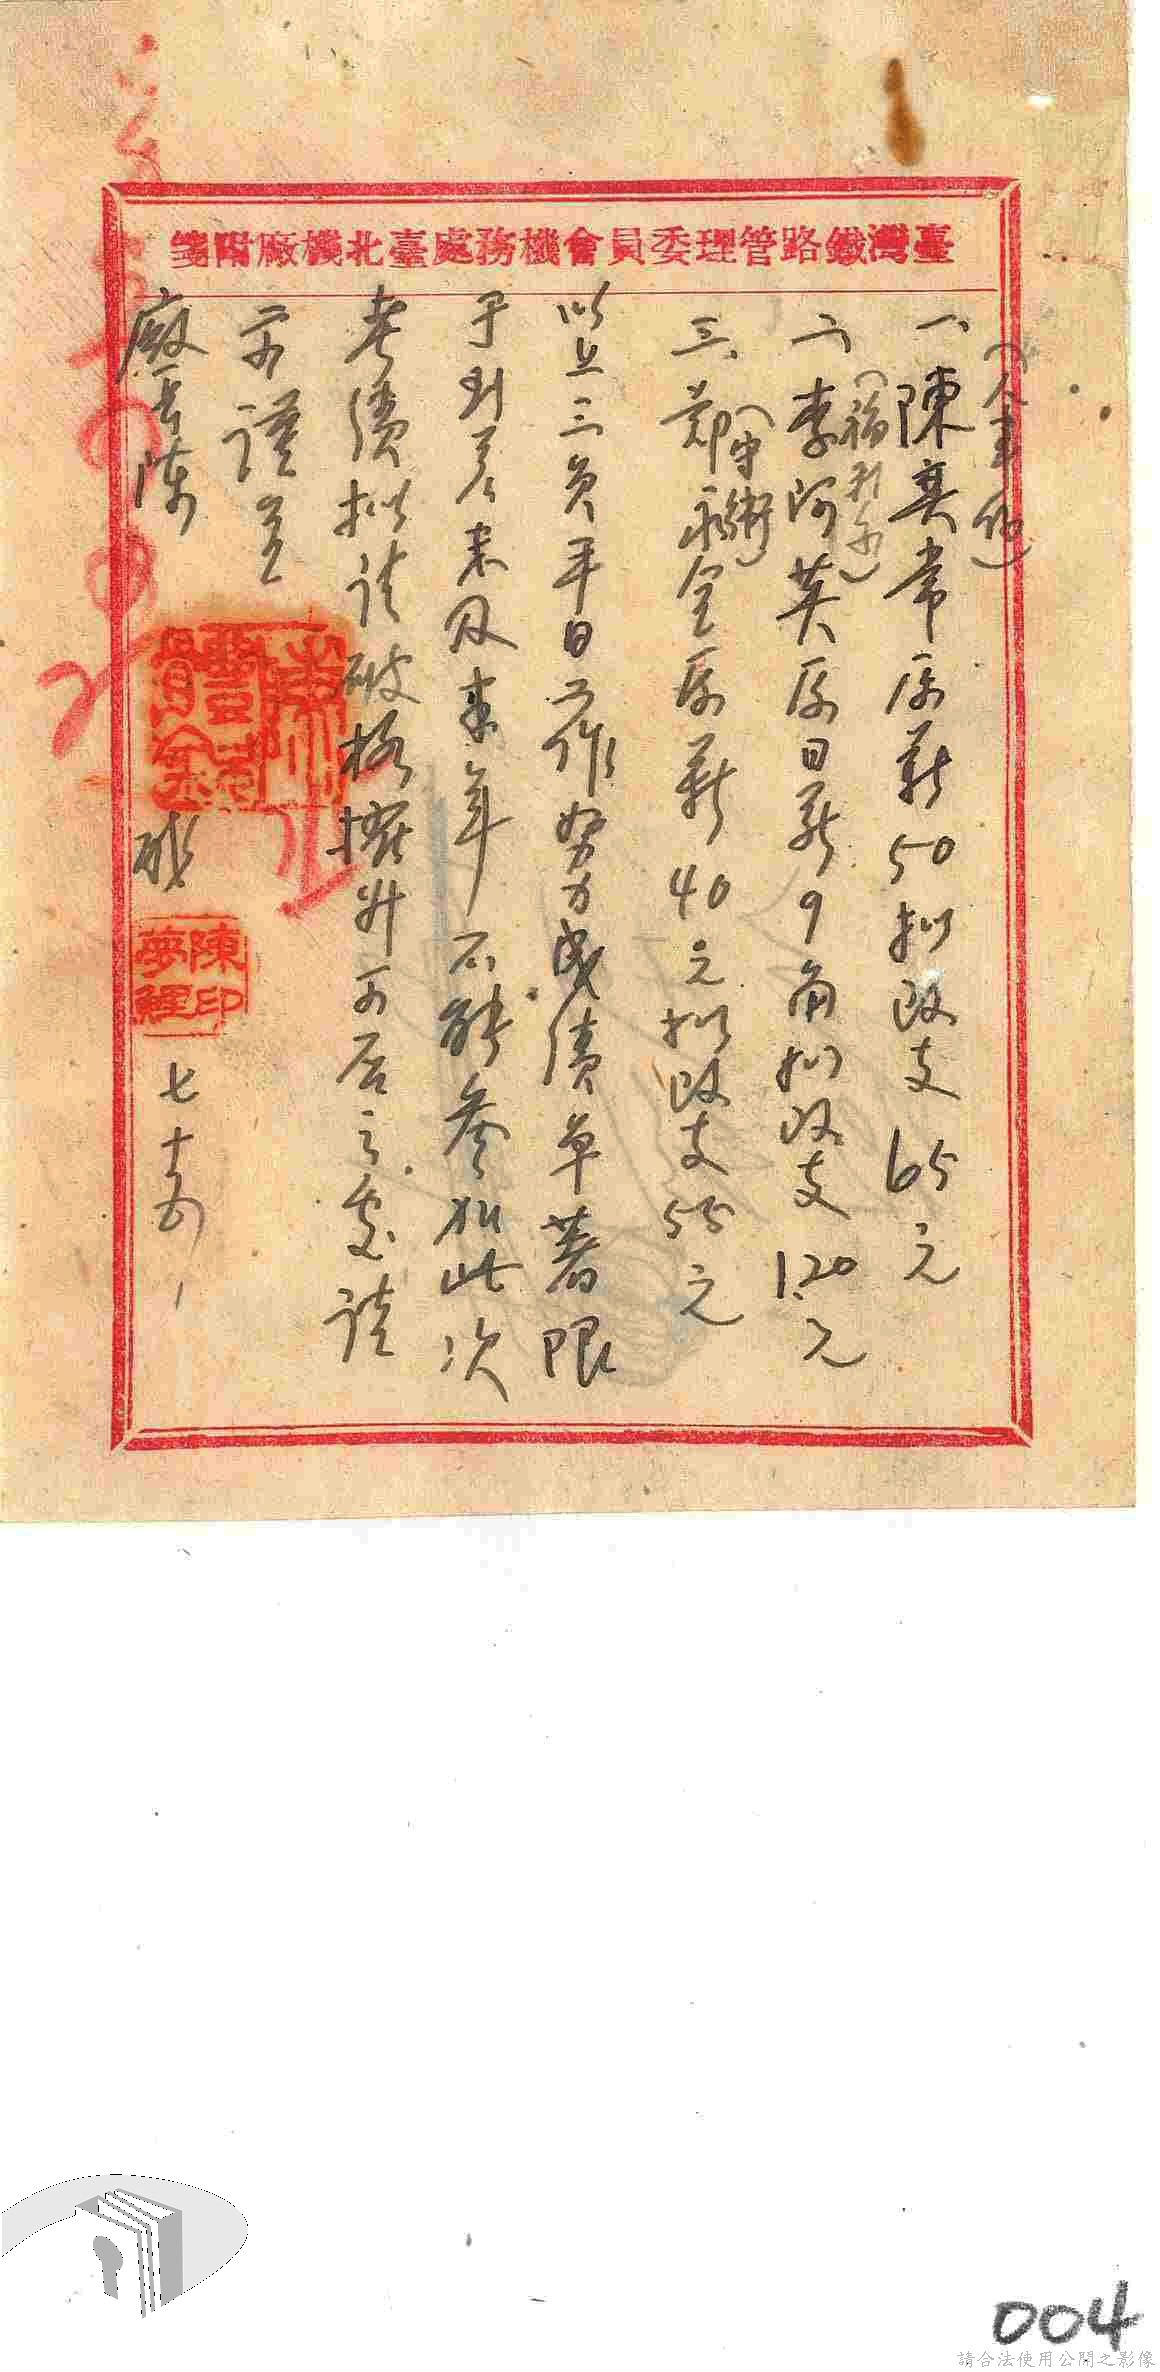 臺灣鐵路管理委員會機務處臺北機廠附箋
(人事 )
一、陳英常原薪50拟改支65元
(福利 )
二、李阿英原日薪9角拟改支1.20元
(守衛)
三、鄭永金原薪40元拟改支55元
以上三員平日工作努力成績卓著限
于到差未及半年不能參加此次
考績拟請破格擢升可否之處請
示謹呈
廠長陳
職
陳印夢鯉
七、十五、
004
請合法使用公開之影像